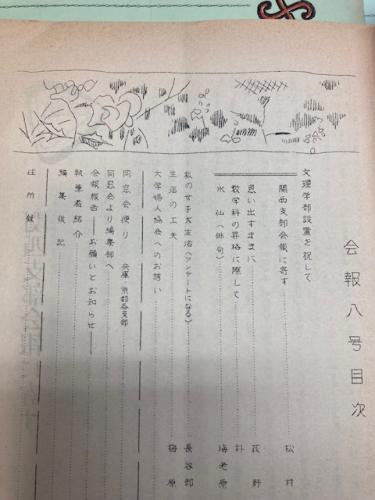 会報八号目次
文理学部設置を祝して
関西支部会報に寄す 松村
思い出すままに 荻野
数学科の昇格に際して
水仙（俳句） 海老原
私の女子大生活（アンケートになる） 長谷部
生活の工夫
大学婦人協会へのお誘い 梅原
同窓会便り 兵庫 京都各支部
同窓会より編集部へ
会報報告——お願いとお知らせ——
執筆者紹介
編集後記
住所録